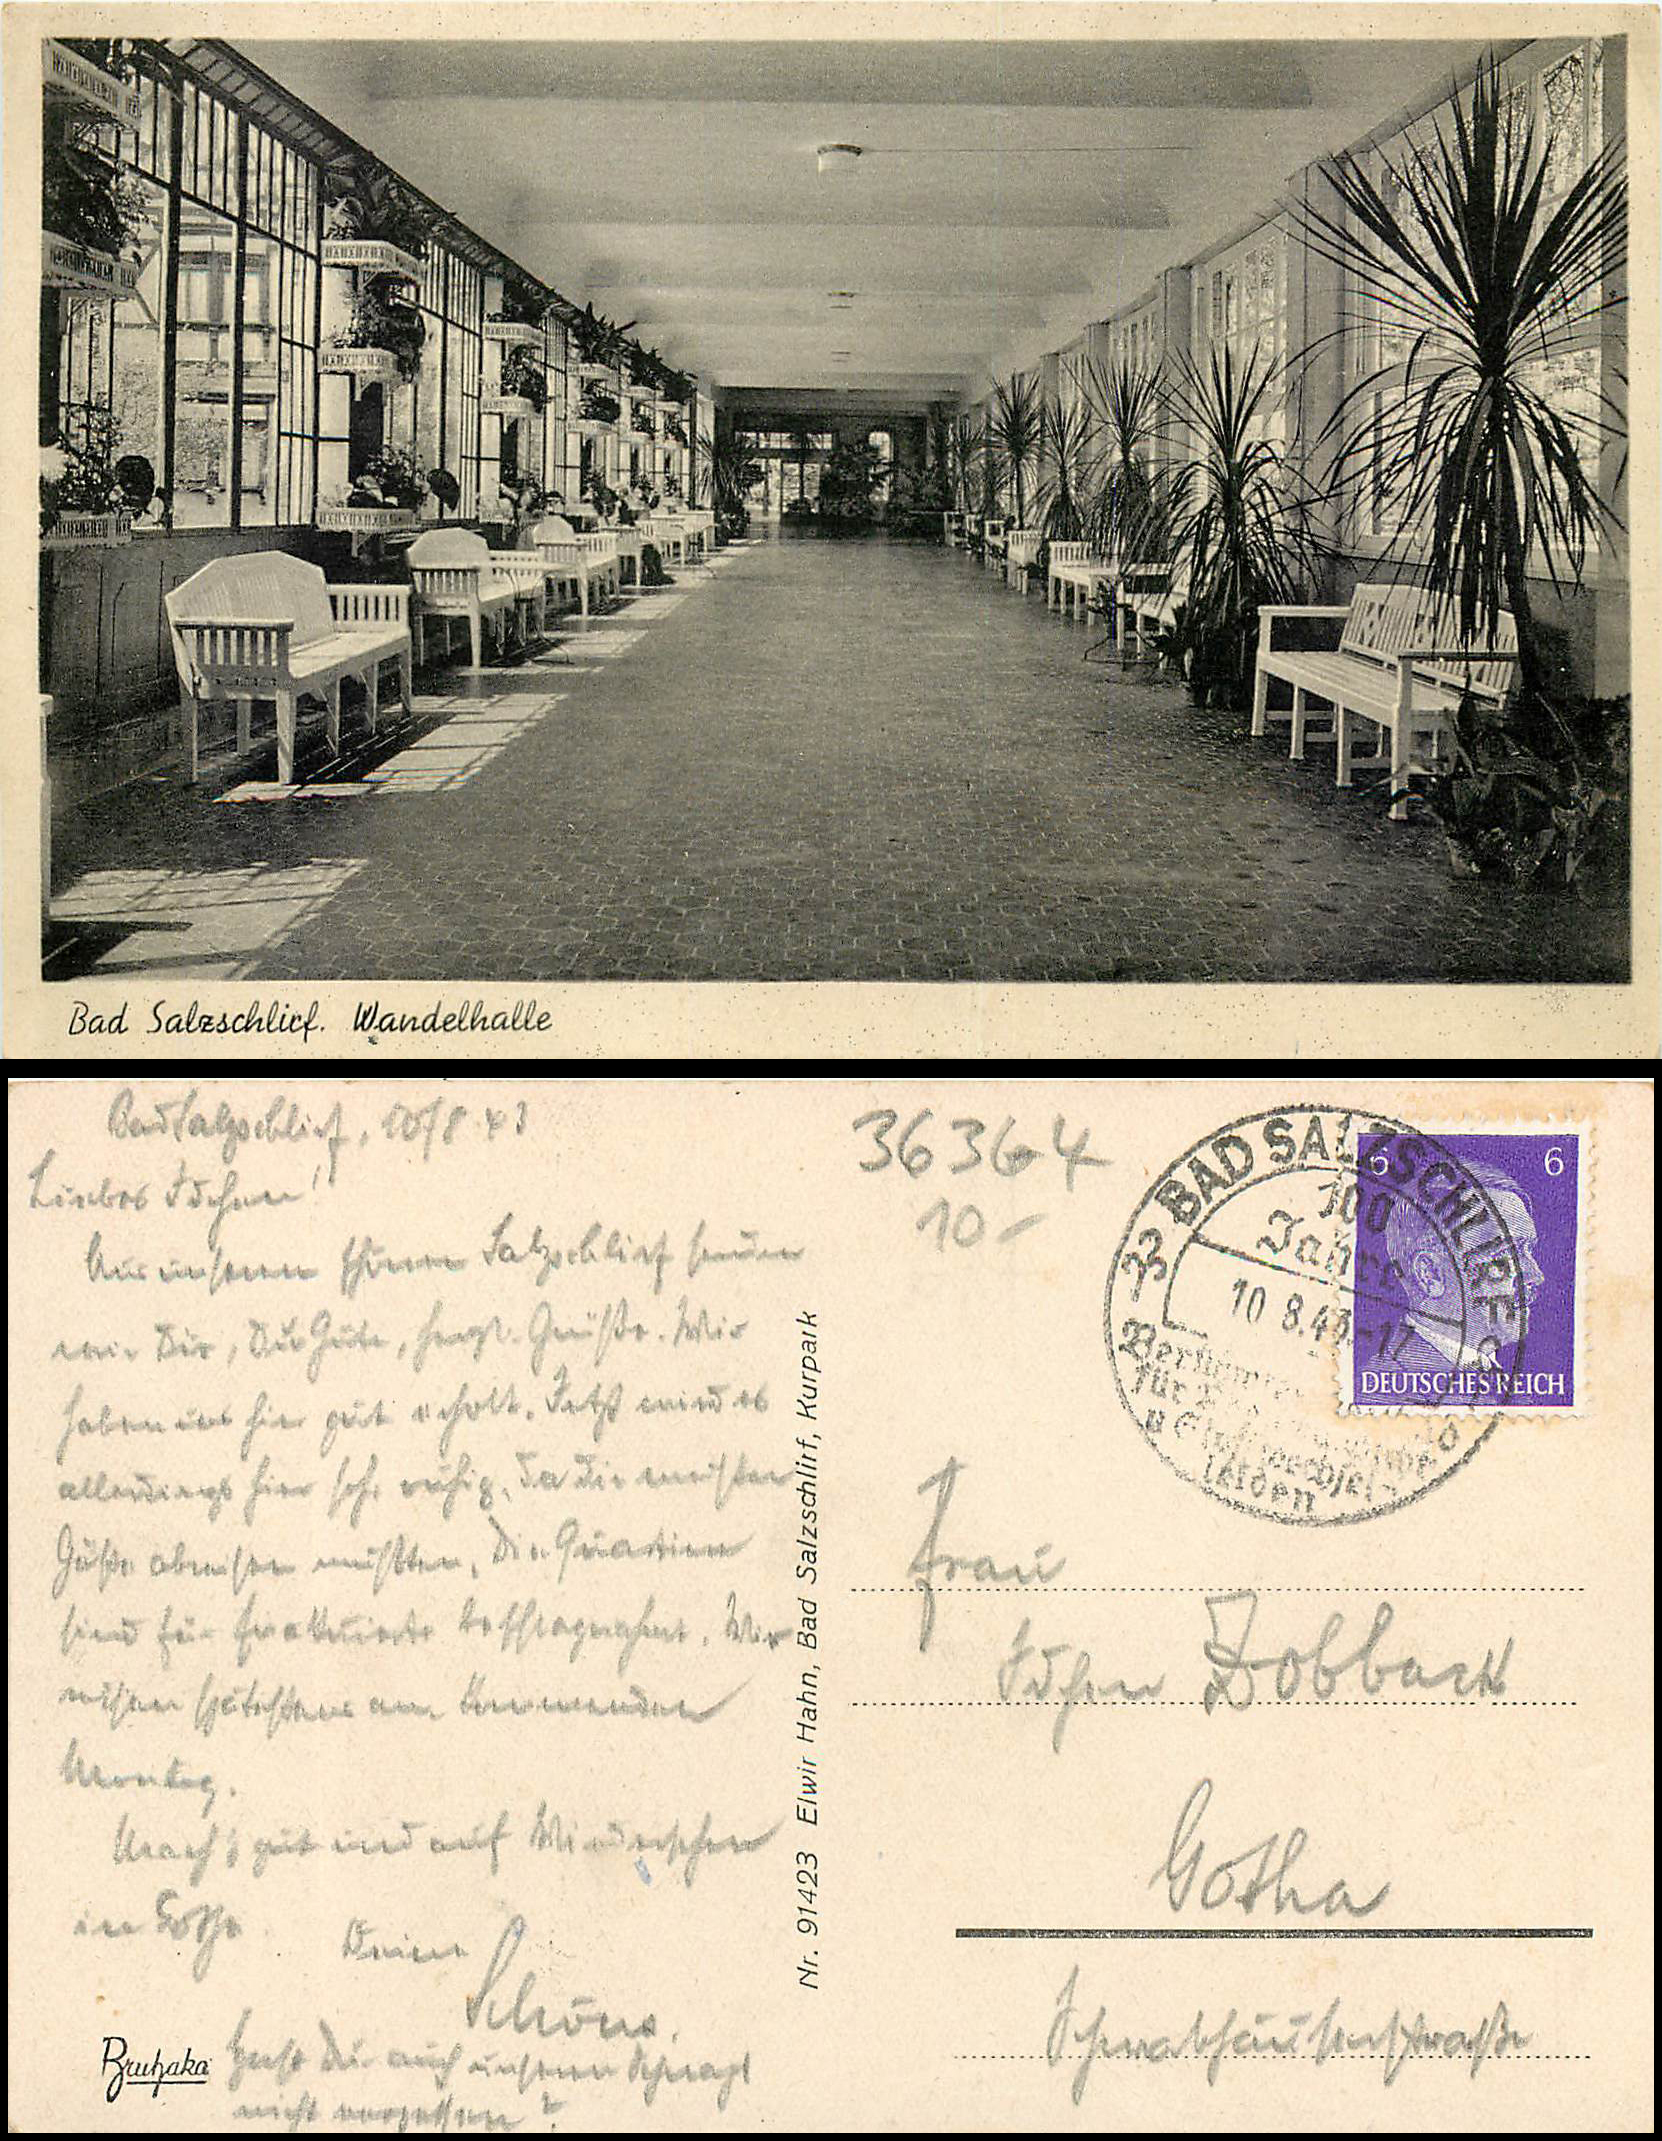 Bad Salzschlirf. Wandelhalle
Bad Salzschlirf, 10/8.43
Liebes
Aus unserem schönen Salzschlirf senden
wir Dir, Du Gute, herzl. Grüße. Wir
haben uns hier gut erholt. Jetzt wird es
allerdings hier sehr ruhig, da die meisten
Gäste abreisen mußten. Die Quartiere
sind für Evakuierte beschlagnahmt. Wir
reisen spätestens am kommenden
Montag.
Mach's gut und auf Wiedersehen
in Gotha
Deine
Schöns.
Hast Du auch unseren
nicht vergessen?
Bruhaka
Nr. 91423 Elwir Hahn, Bad Salzschlirf, Kurpark
36364
10-
33 BAD SALZSCHLIRF
100
Jahre
10 8.43.-17
für
u Stoffwechsel-
leiden
6 6
DEUTSCHES REICH
Frau
Zobback
Gotha
Schwabhäuserstraße